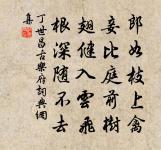 郎如枝上禽
妾比庭前樹
翅健入雲飛
根深随不去
丁世昌古樂府詞典網
集